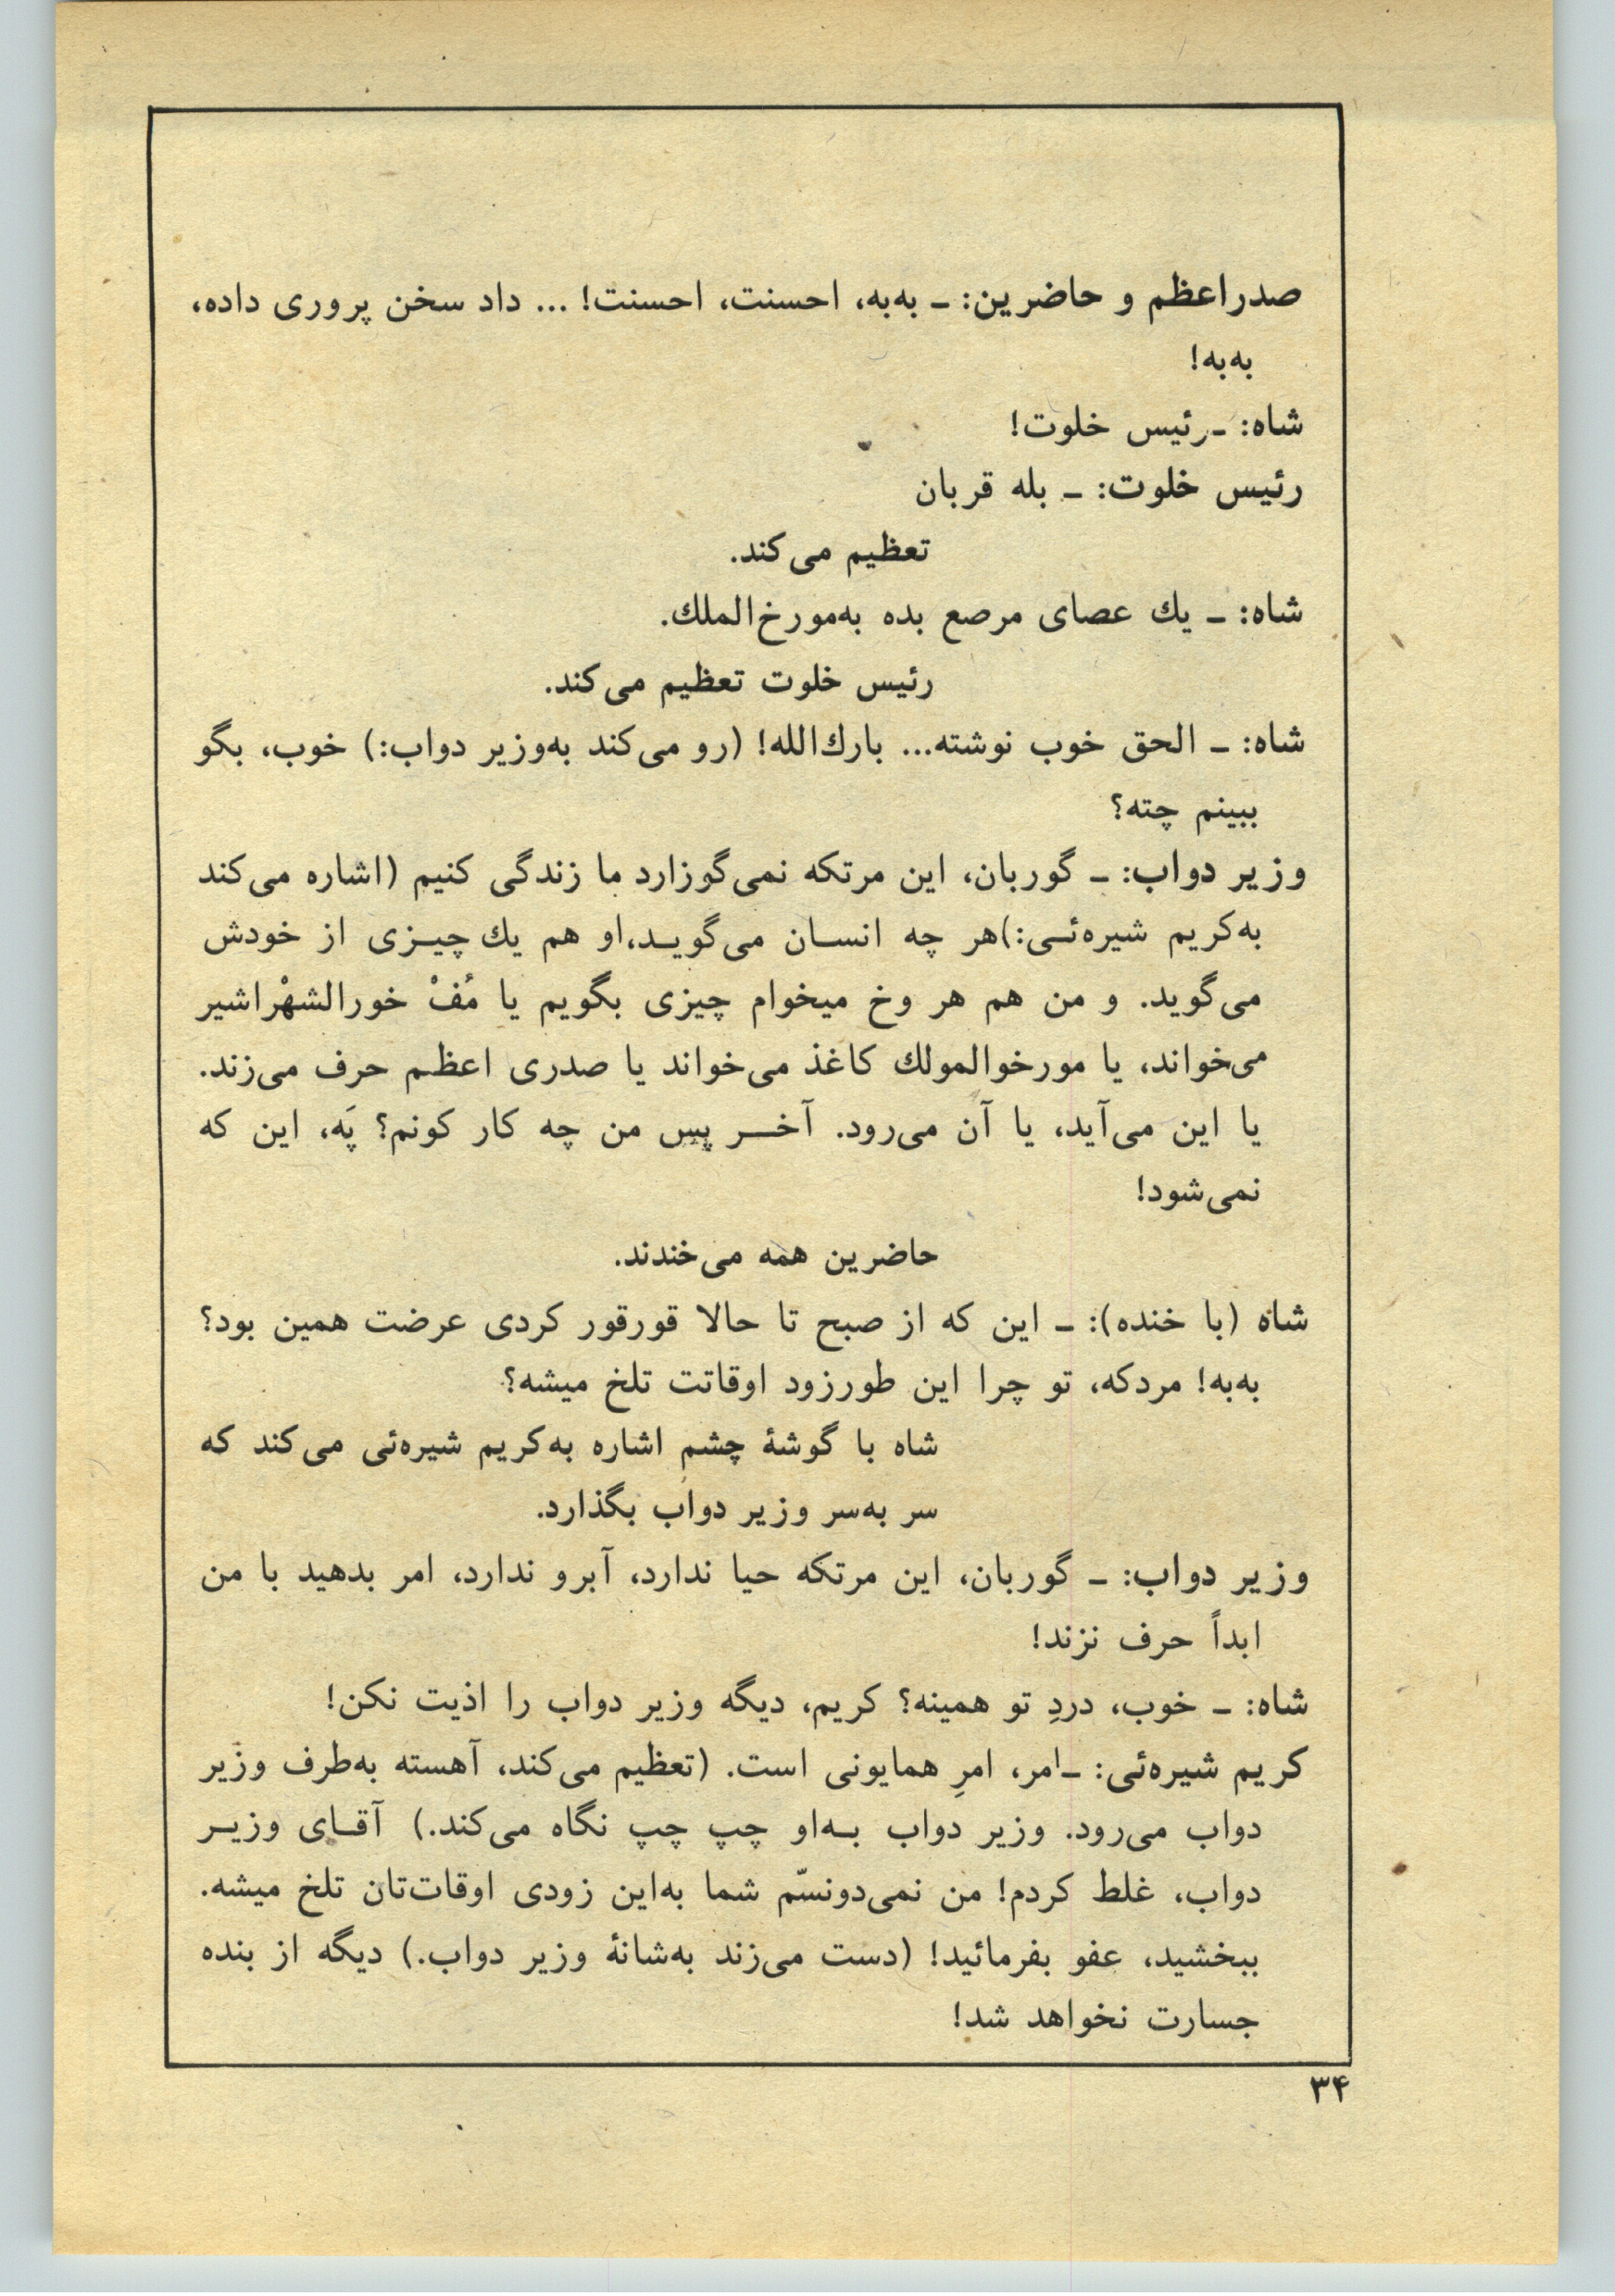 صدراعظم و حاضرین: ـ به‌به، احسنت، احسنت! ... داد سخن پروری داده،
به‌به!
شاه: ـ رئیس خلوت!
رئیس خلوت: ـ بله قربان
تعظیم می‌کند.
شاه: ـ یك عصای مرصع بده به‌مورخ‌الملك.
رئیس خلوت تعظیم می‌کند.
شاه: ـ الحق خوب نوشته... بارك‌الله! (رو می‌کند به‌وزیر دواب:) خوب، بگو
ببینم چته؟
وزیر دواب: ـ گوربان، این مرتکه نمی‌گوزارد ما زندگی کنیم (اشاره می‌کند
به‌کریم شیره‌ئـی:)هر چه انسـان می‌گویـد،او هم یك چیـزی از خودش
می‌گوید. و من هم هر وخ میخوام چیزی بگویم یا مُفْ خورالشهْراشیر
می‌خواند، یا مورخوالمولك کاغذ می‌خواند یا صدری اعظم حرف می‌زند.
یا این می‌آید، یا آن می‌رود. آخـــر پس من چه کار کونم؟ پَه، این که
نمی‌شود!
حاضرین همه می‌خندند.
شاه (با خنده): ـ این که از صبح تا حالا قورقور کردی عرضت همین بود؟
به‌به! مردکه، تو چرا این طورزود اوقاتت تلخ میشه؟
شاه با گوشهٔ چشم اشاره به‌کریم شیره‌ئی می‌کند که
سر به‌سر وزیر دواب بگذارد.
وزیر دواب: ـ گوربان، این مرتکه حیا ندارد، آبرو ندارد، امر بدهید با من
ابداً حرف نزند!
شاه: ـ خوب، دردِ تو همینه؟ کریم، دیگه وزیر دواب را اذیت نکن!
کریم شیره‌ئی: ـ امر، امرِ همایونی است. (تعظیم می‌کند، آهسته به‌طرف وزیر
دواب می‌رود. وزیر دواب بـه‌او چپ چپ نگاه می‌کند.) آقـای وزیـر
دواب، غلط کردم! من نمی‌دونسّم شما به‌این زودی اوقات‌تان تلخ میشه.
ببخشید، عفو بفرمائید! (دست می‌زند به‌شانهٔ وزیر دواب.) دیگه از بنده
جسارت نخواهد شد!
۳۴